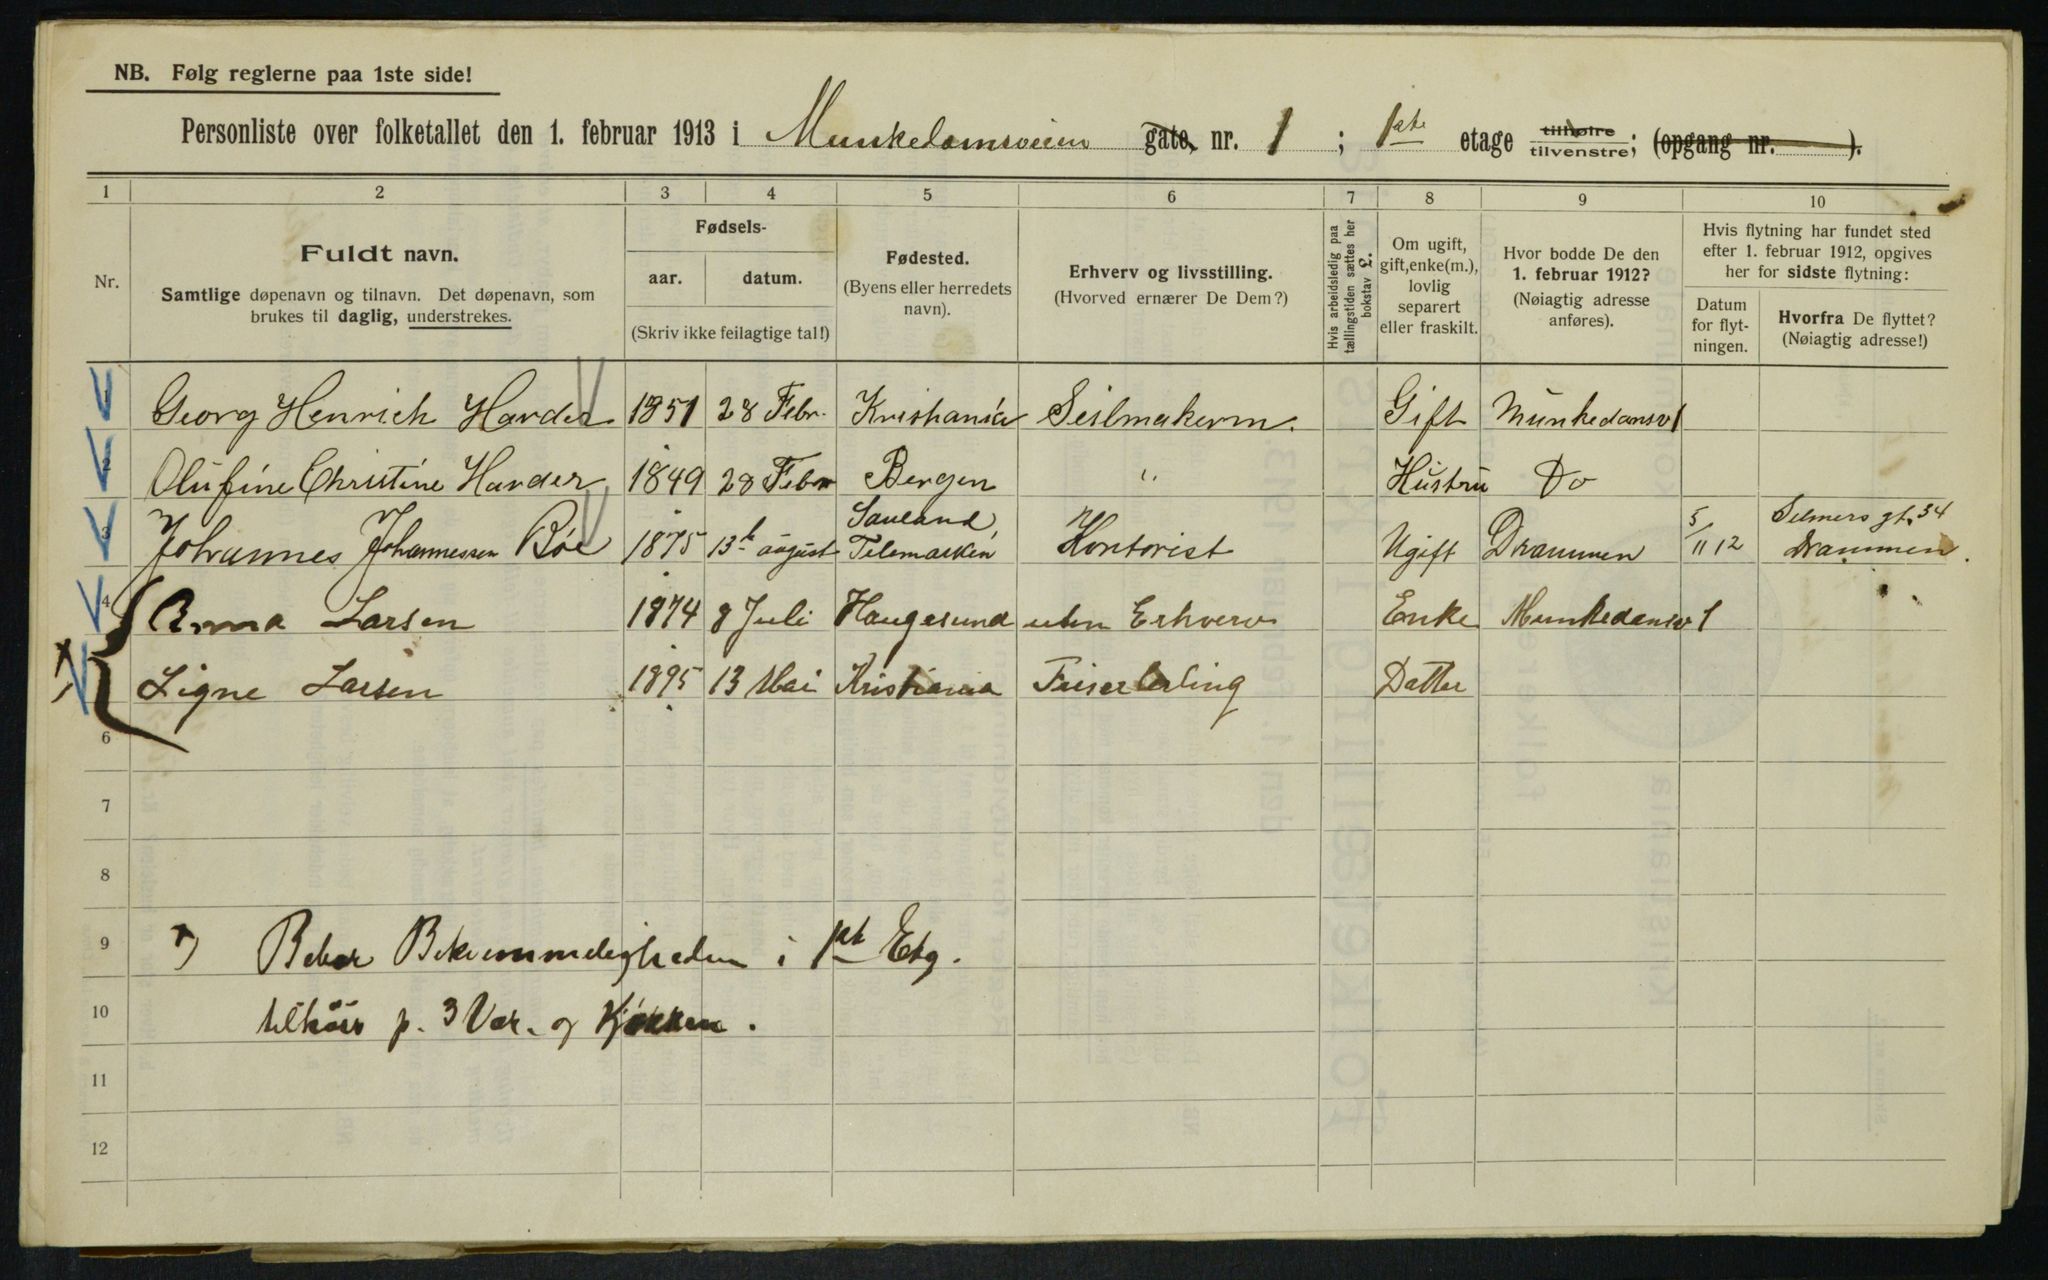 NB. Følg reglerne paa 1ste side!
Personliste over folketallet den 1. februar 1913 i Munkedamsveien gate, nr. 1 ; 1ste etage tilhøire tilvenstre; (opgang nr. ).
1 2 3 4 5 6 7 8 9 10
Nr.
Fuldt navn.
Samtlige døpenavn og tilnavn. Det døpenavn, som
brukes til daglig, understrekes.
Fødsels-
aar. datum.
(Skriv ikke feilagtige tal!)
Fødested.
(Byens eller herredets
navn).
Erhverv og livsstilling.
(Hvorved ernærer De Dem?)
Hvis arbeidsledig paa
tællingstiden sættes her
bokstav L.
Om ugift,
gift, enke(m.),
lovlig
separert
eller fraskilt.
Hvor bodde De den
1. februar 1912?
(Nøiagtig adresse
anføres).
Hvis flytning har fundet sted
efter 1. februar 1912, opgives
her for sidste flytning:
Datum
for flyt-
ningen.
Hvorfra De flyttet?
(Nøiagtig adresse!)
1 Georg Henrich Harder 1851 28 Febr. Kristiania Seilmakerm. Gift Munkedamsv 1
2 Olufine Christine Harder 1849 28 Febr Bergen " Hustru Do
3 Johannes Johannessen Bøe 1875 13de august Sauland Telemarken Kontorist Ugift Drammen 5/11 12 Selmers gt. 34 Drammen.
4 Anna Larsen 1874 8 Juli Haugesund uten Erhverv Enke Munkedamsv 1
Signe Larsen 1895 13 Mai Kristiania Friserlerling Datter
6
7
8
9 Bebor Bekvemmeligheden i 1st Etg.
10 tilhöire p. 3 Vær. og Kjøkken.
11
12